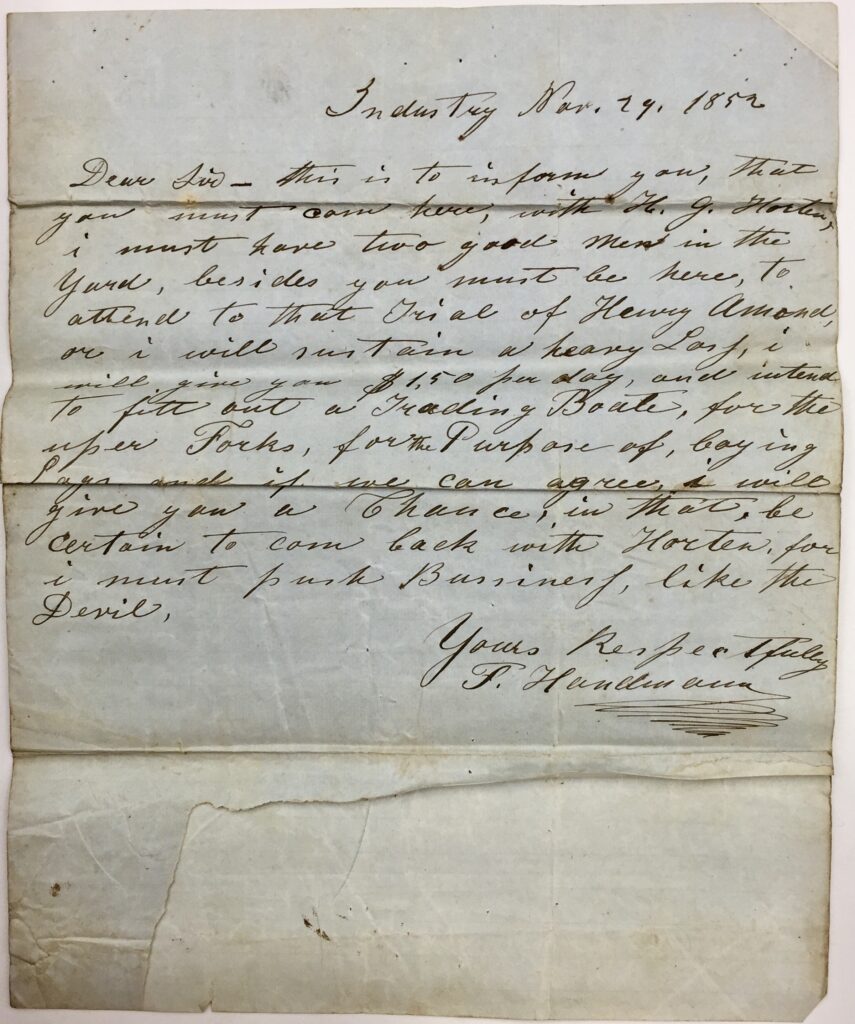 Industry Nov. 29. 1852
Dear Sir – this is to inform you, that
you must com here, with H. G. Horten,
i must have two good men in the
Yard, besides you must be here, to
attend to that Trial of Henry Amond,
or i will sustain a heavy Loss, i
will give you $1,50 per day, and intend
to fitt out a Trading Boate, for the
uper Forks, for the Purpose of, buying
and if we can agree, i will
give you a Chance, in that, be
certain to com back with Horten, for
i must push Bussiness, like the
Devil,
Yours Respectfully
F. Handmann